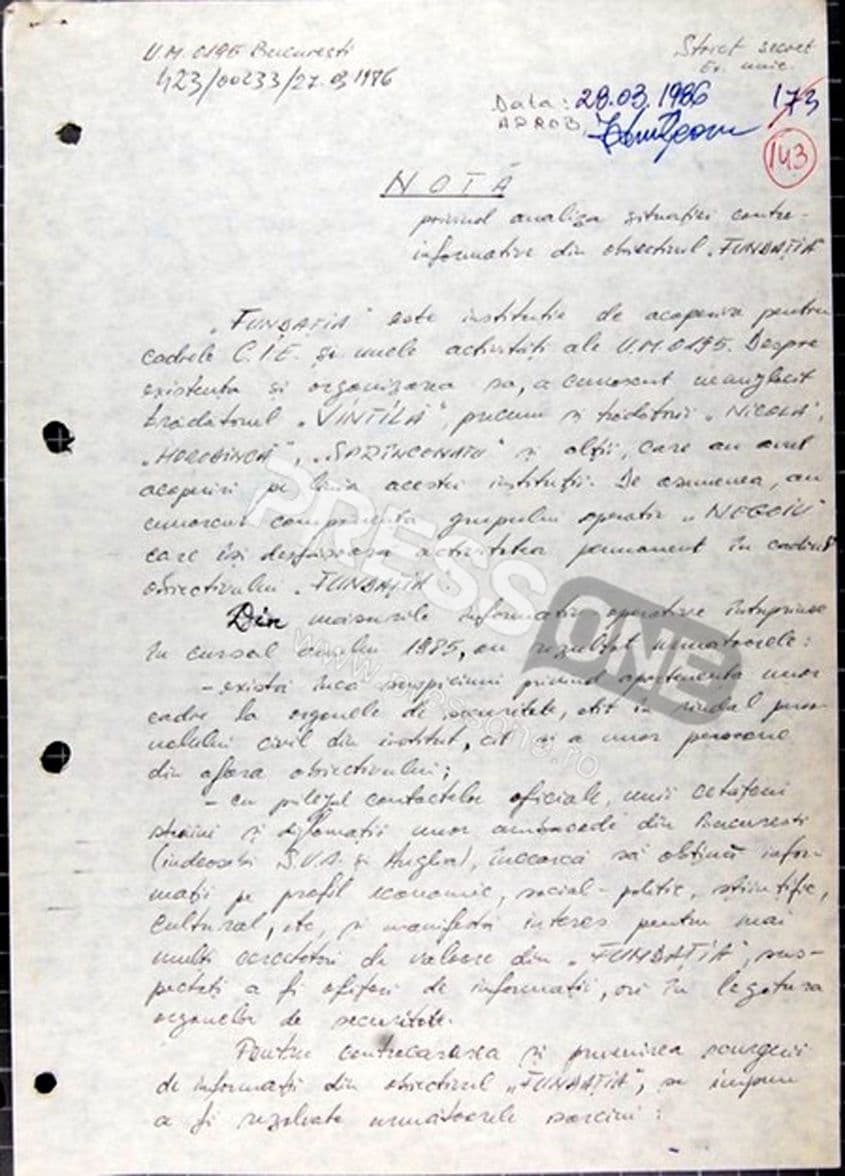 U.M. 0195 Bucureşti
423/00233/27.03.1986
Strict secret
Ex. unic.
Data: 28.03.1986
APROB,
173
143
NOTĂ
privind analiza situaţiei contra-
informative din obiectivul „FUNDAŢIA"
„FUNDAŢIA" este instituţie de acoperire pentru
cadrele C.I.E. şi unele activităţi ale U.M. 0195. Despre
existenţa şi organizarea sa, a cunoscut nemijlocit
trădătorul „VINTILĂ", precum şi trădătorii „NICOLA",
„HOROBINCĂ", şi alţii, care au avut
acoperiri pe linia acestei instituţii. De asemenea, au
cunoscut componenţa grupului operativ „NEGOIU"
care îşi desfăşoară activitatea permanent în cadrul
obiectivului „FUNDAŢIA
Din măsurile informativ operative întreprinse
în cursul anului 1985, au rezultat următoarele:
- există încă suspiciuni privind apartenenţa unor
cadre la organele de securitate, atît în rîndul perso-
nalului civil din institut, cît şi a unor persoane
din afara obiectivului;
- cu prilejul contactelor oficiale, unii cetăţeni
străini şi diplomaţii unor ambasade din Bucureşti
(îndeosebi S.U.A. şi Anglia), încearcă să obţină infor-
maţii pe profil economic, social-politic, ştiinţific,
cultural, etc, şi manifestă interes pentru mai
mulţi cercetători de valoare din „FUNDAŢIA", sus-
pectaţi a fi ofiţeri de informaţii, ori în legătura
organelor de securitate.
Pentru contracararea şi prevenirea scurgerii
de informaţii din obiectivul „FUNDAŢIA", se impun
a fi rezolvate următoarele sarcini:
PRESSONE